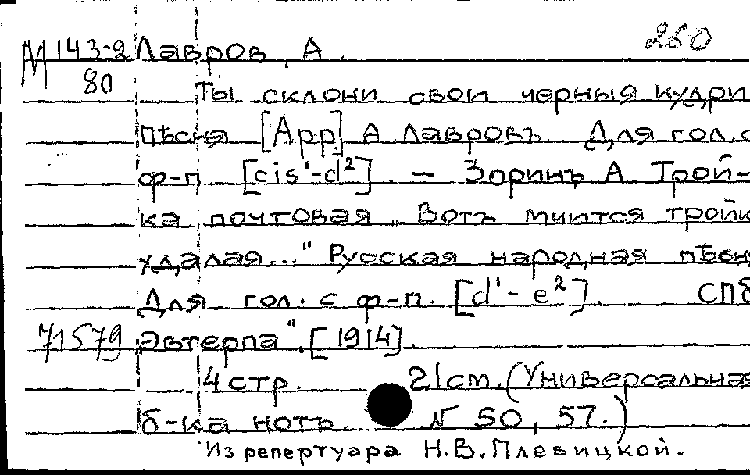 М 143-2 Лавров, А. 260
80
Ты склони свои черныя кудри
пѣсня [Арр] А Лавровъ Для гол. с
ф-п [cis'-d²]. — Зоринъ А. Трой-
ка почтовая „Вотъ мчится тройк
удалая..." Русская народная пѣсн
Для гол. с ф-п. [d'-e²]. СПб
71579 Эвтерпа". [1914].
4 стр. 21 см. (Универсальная
б-ка нотъ N 50, 57.)
Из репертуара Н.В. Плевицкой.